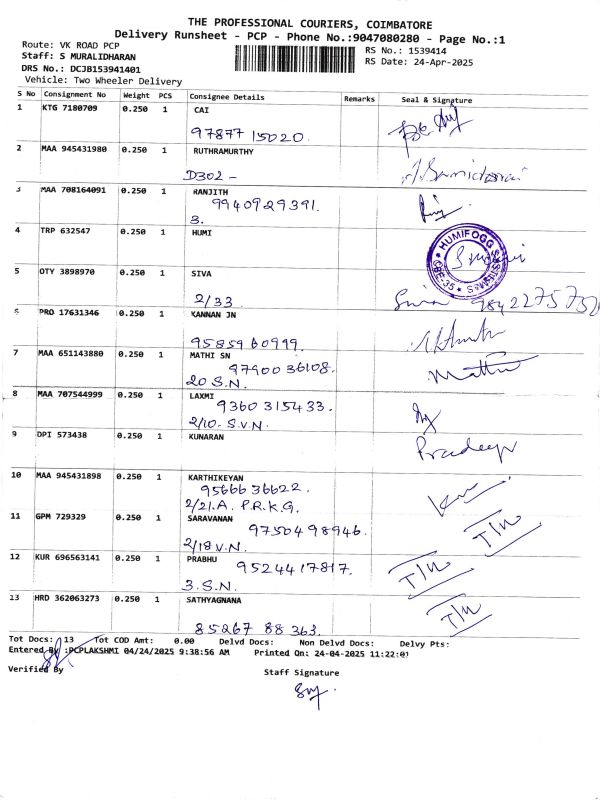 THE PROFESSIONAL COURIERS, COIMBATORE
Delivery Runsheet - PCP - Phone No.:9047080280 - Page No.:1
Route: VK ROAD PCP
RS No.: 1539414
Staff: S MURALIDHARAN
RS Date: 24-Apr-2025
DRS No.: DCJB153941401
Vehicle: Two Wheeler Delivery
S No Consignment No Weight PCS Consignee Details Remarks Seal & Signature
1 KTG 7180709 0.250 1 CAI
97877 15020.
2 MAA 945431980 0.250 1 RUTHRAMURTHY
D302 -
3 MAA 708164091 0.250 1 RANJITH
9940929391.
3.
4 TRP 632547 0.250 1 HUMI
HUMIFOGG SYSTEMS * CBE-35 *
5 OTY 3898970 0.250 1 SIVA
2/33
Siva
6 PRO 17631346 0.250 1 KANNAN JN
95859 60999.
7 MAA 651143880 0.250 1 MATHI SN
97900 36108.
20 S.N.
8 MAA 707544999 0.250 1 LAXMI
9360 315433.
2/10. S.V.N.
9 DPI 573438 0.250 1 KUNARAN
Pradeep
10 MAA 945431898 0.250 1 KARTHIKEYAN
95666 36622.
2/21.A. P.R.K.G.
11 GPM 729329 0.250 1 SARAVANAN
97504 98946.
2/18 V.N.
12 KUR 696563141 0.250 1 PRABHU
95244 17817.
3.S.N.
13 HRD 362063273 0.250 1 SATHYAGNANA
85267 88 363.
Tot Docs: 13 Tot COD Amt: 0.00 Delvd Docs: Non Delvd Docs: Delvy Pts:
Entered By :PCPLAKSHMI 04/24/2025 9:38:56 AM Printed On: 24-04-2025 11:22:01
Verified By
Staff Signature